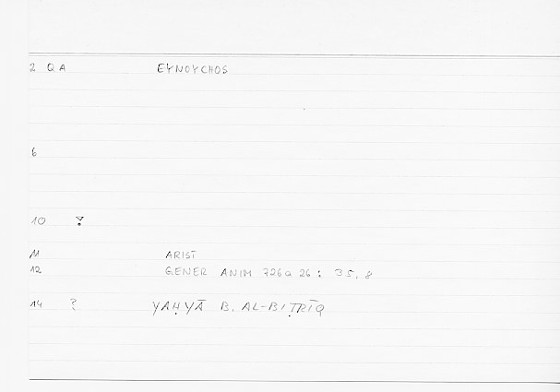 2 Q A EYNOYCHOS
6
10 Ỵ
11 ARIST
12 GENER ANIM 726a 26 : 35, 8
14 ? YAḤYĀ B. AL-BIṬRĪQ